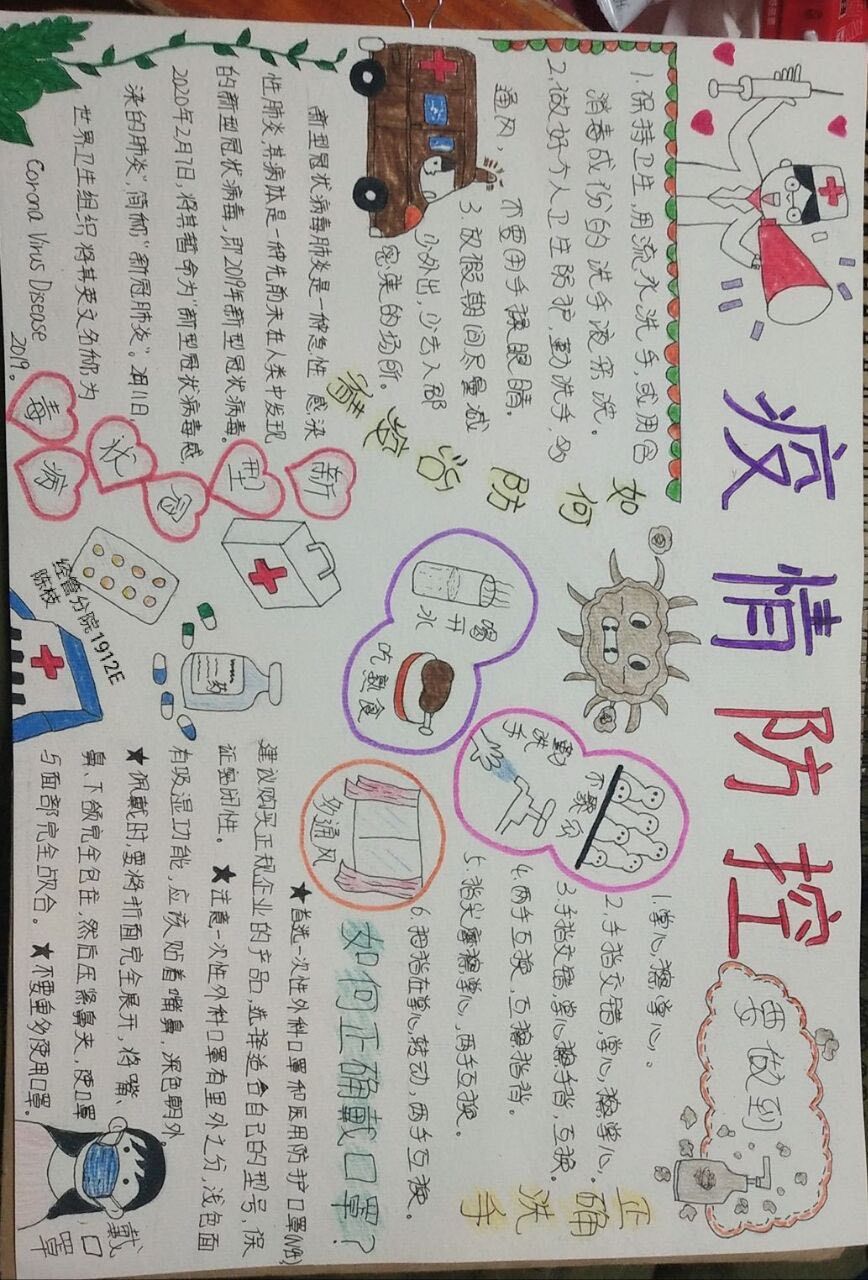 疫情防控
要做到
1.保持卫生,用流水洗手,或用含
消毒成份的洗手液来洗。
2.做好个人卫生防护,勤洗手,多
通风,
不要用手揉眼睛。
3.放假期间尽量减
少外出,少去人部
密集的场所。
如何防治疫情
新型冠状病毒肺炎是一种急性感染
性肺炎,其病体是一种先前未在人类中发现
的新型冠状病毒,即2019年新型冠状病毒。
2020年2月7日,将其暂命为“新型冠状病毒感
染的肺炎”,简称“新冠肺炎”。2月11日,
世界卫生组织将其英文名称为
Corona Virus Disease
2019。
新型冠状病毒
喝开水
吃熟食
勤洗手
不聚众
多通风
药
正确洗手
1.掌心,擦掌心,。
2.手指交错,掌心,擦掌心,。
3.手指交错,掌心擦手背,互换。
4.两手互换,互擦指背。
5.指尖摩擦掌心,两手互换。
6.拇指在掌心转动,两手互换。
如何正确戴口罩?
★首选一次性外科口罩和医用防护口罩(N95),
建议购买正规企业的产品,选择适合自己的型号,保
证密闭性。★注意一次性外科口罩有里外之分,浅色面
有吸湿功能,应该贴着嘴鼻,深色朝外。
★佩戴时,要将折面完全展开,将嘴、
鼻、下颌完全包住,然后压紧鼻夹,使口罩
与面部完全吻合。★不要重多使用口罩。
戴口罩
经管分院1912E
陈枝